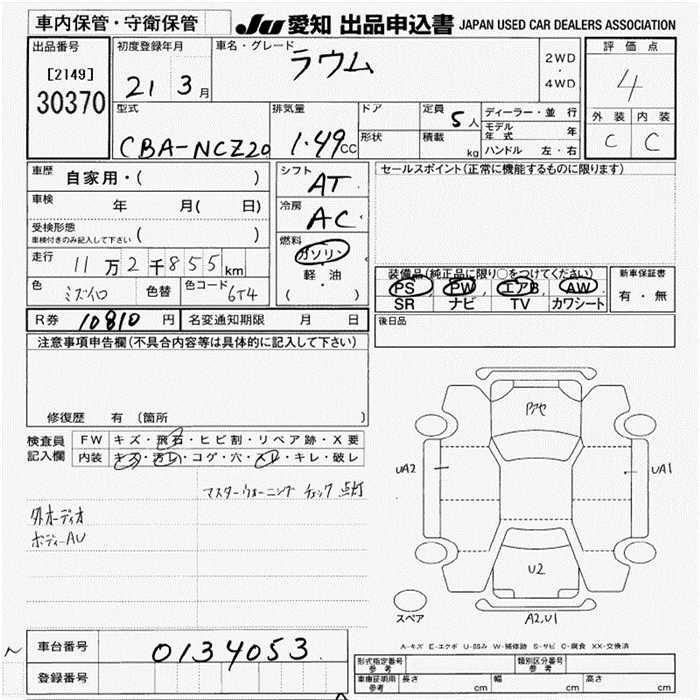 車内保管・守衛保管
JU 愛知 出品申込書 JAPAN USED CAR DEALERS ASSOCIATION
出品番号
[2149]
30370
初度登録年月
21 3月
車名・グレード
ラウム
2WD
・
4WD
評価点
4
外装 内装
C C
型式
CBA-NCZ20
排気量
1.49CC
ドア
形状
定員 5人
積載 kg
ディーラー・並行
モデル年式 年
ハンドル 左・右
車歴 自家用・( )
車検 年 月( 日)
受検形態
車検付きのみ記入して下さい ( )
走行 11万2千855km
色 ミズイロ 色替 色コード 6T4
シフト AT
冷房 AC
燃料
ガソリン
・
軽・油
( )
セールスポイント(正常に機能するものに限ります)
装備品(純正品に限り○をつけてください)
PS PW エアB AW
SR ナビ TV カワシート
新車保証書
有・無
R券 10810円 名変通知期限 月 日
後日品
注意事項申告欄(不具合内容等は具体的に記入して下さい)
修復歴 有(箇所 )
検査員
記入欄
FW キズ・飛石・ヒビ割・リペア跡・X要
内装 キズ・汚レ・コゲ・穴・スレ・キレ・破レ
マスターウォーニング チェック 点灯
外オーディオ
ボディーAU
UA2
UA1
U2
スペア
A2,U1
A-キズ E-エクボ U-凹み W-補修跡 S-サビ C-腐食 XX-交換済
車台番号 0134053
登録番号
形式指定番号
参考
類別区分番号
参考
車庫証明用
参考
長さ cm 幅 cm 高さ cm